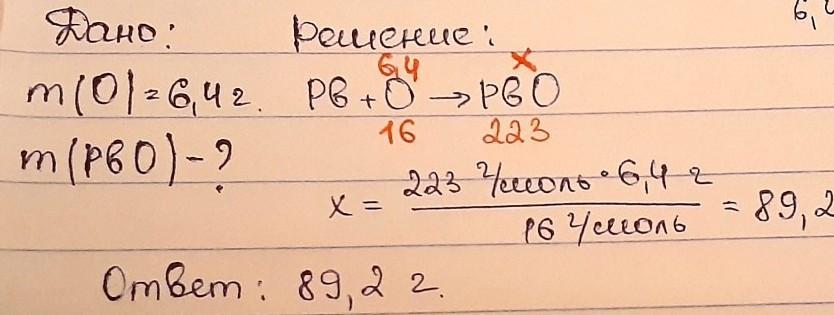 6,
Дано: Решение:
6,4 x
m(O)=6,4 г. Pb + O → PbO
16 223
m(PbO) - ?
x = 223 г/моль · 6,4 г / 16 г/моль = 89,2
Ответ: 89,2 г.